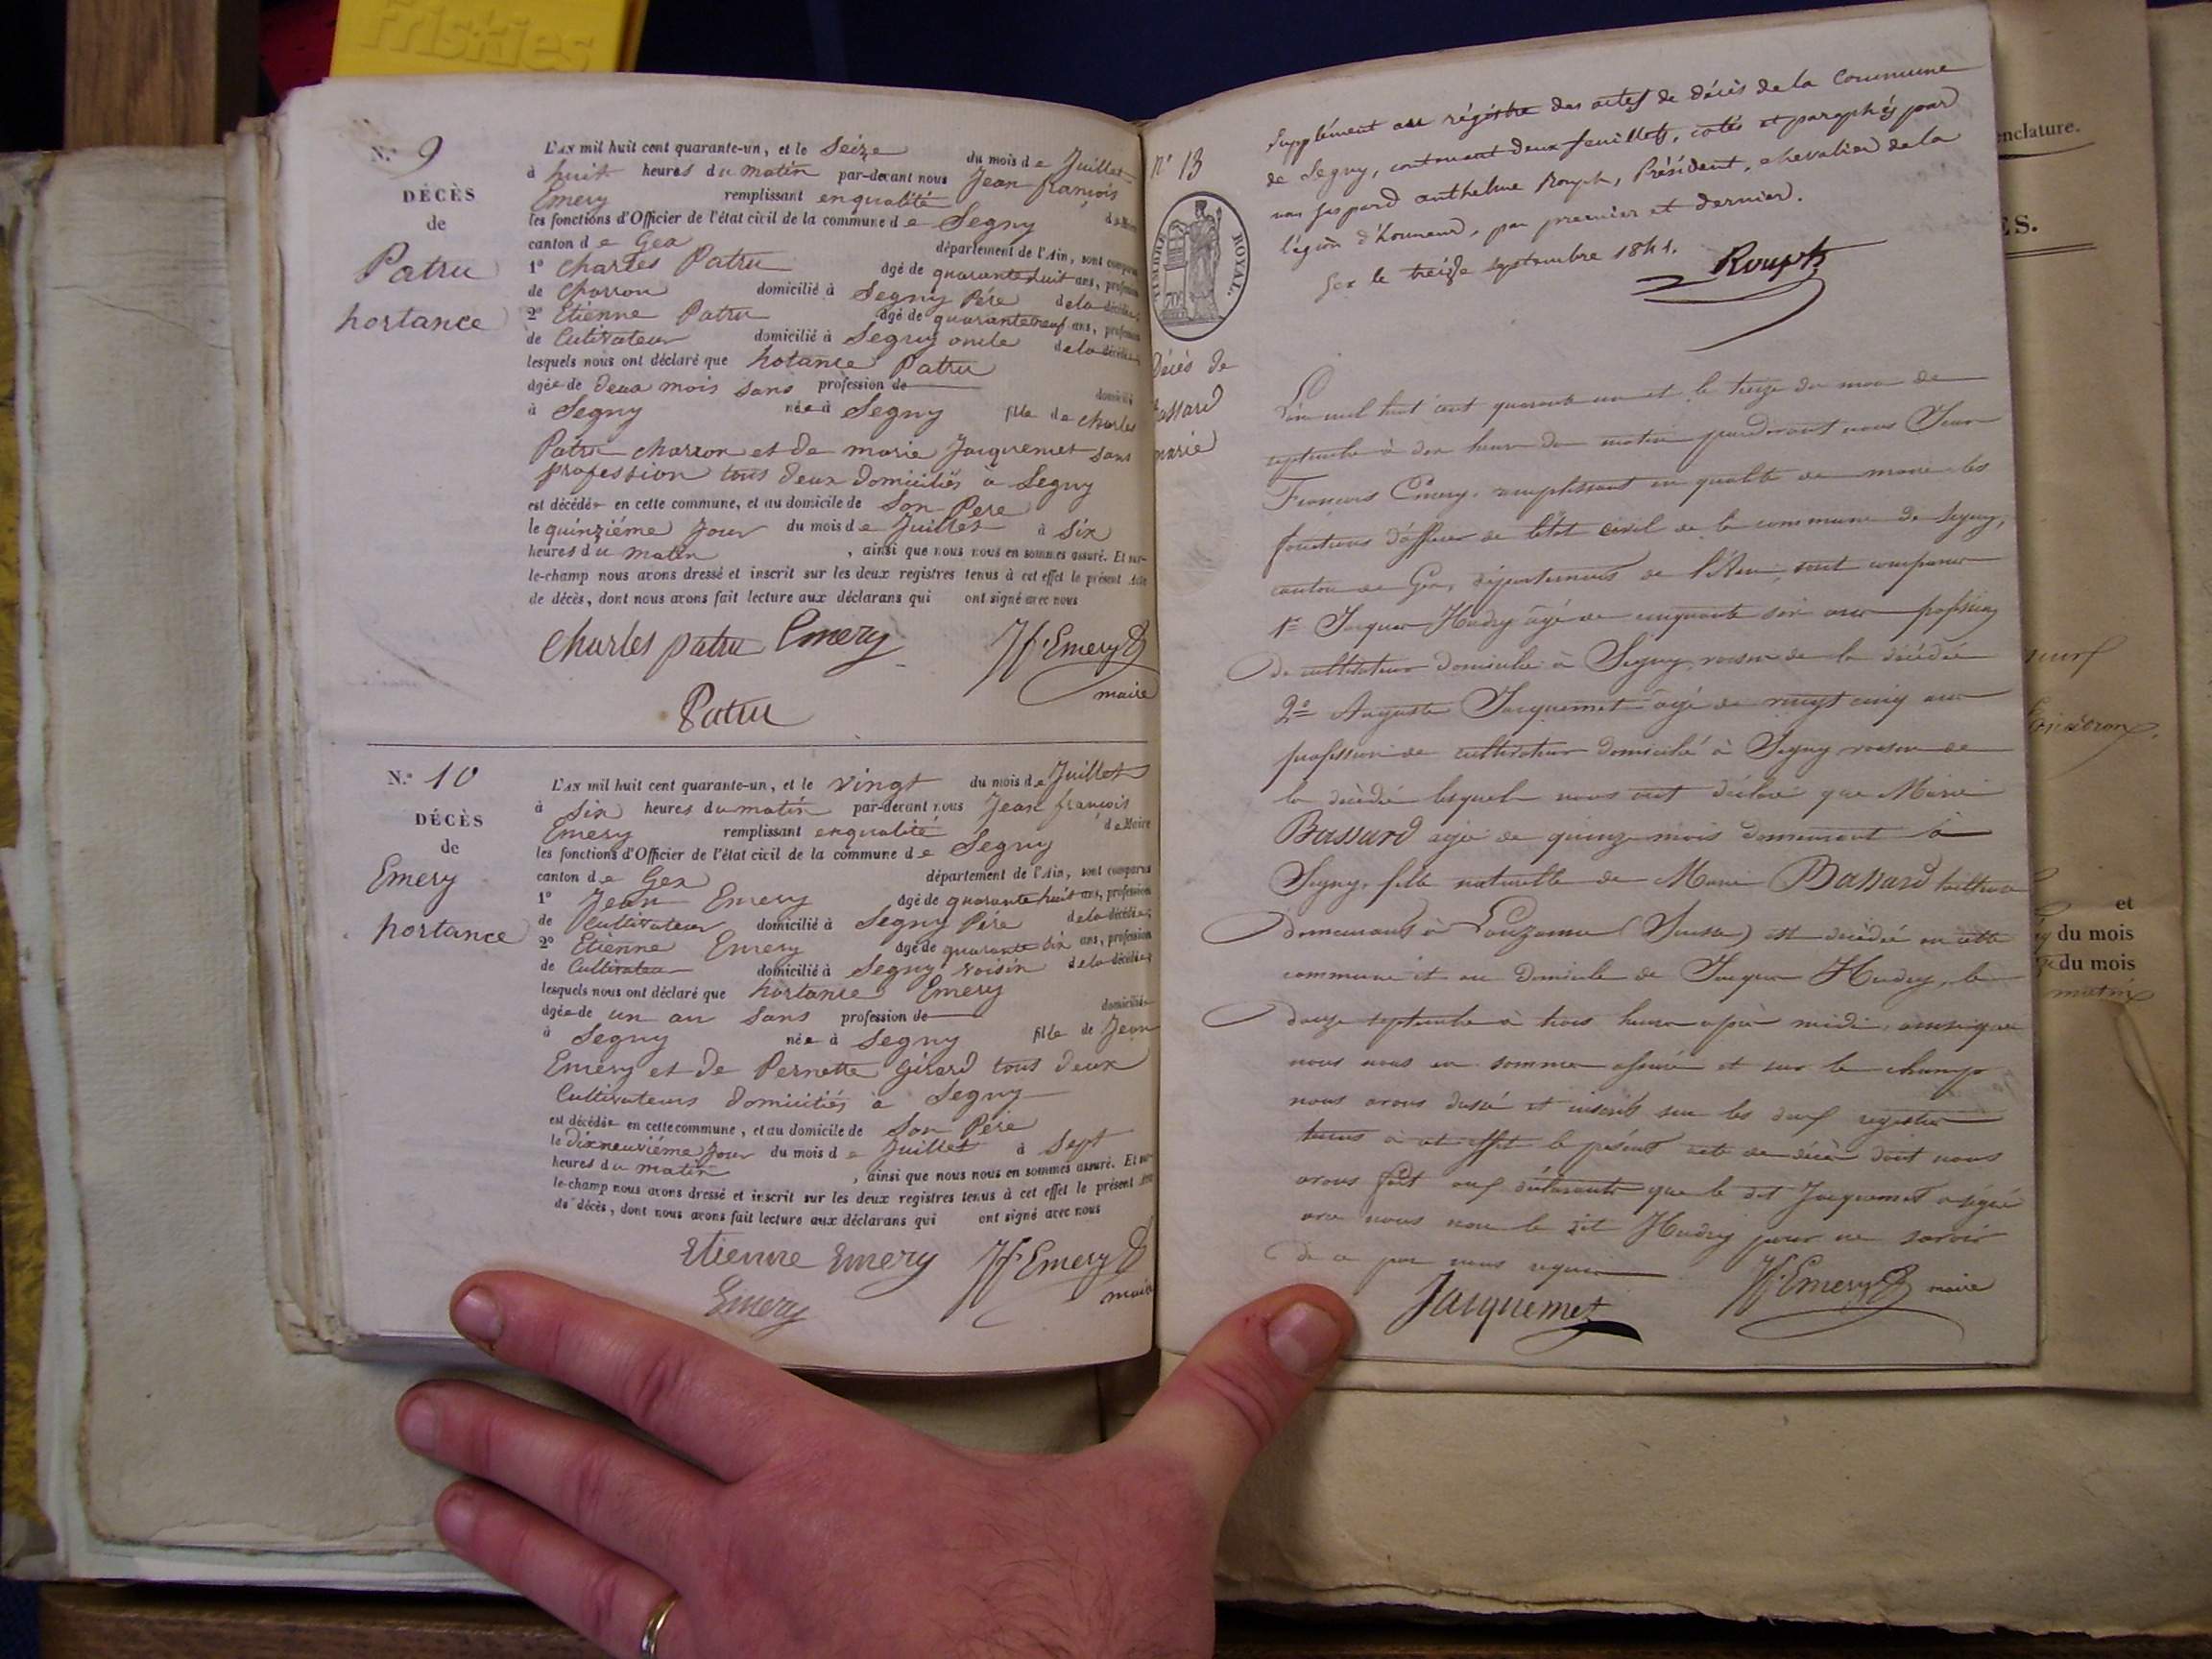 Friskies
N.° 9
DÉCÈS
de
Patru
hortance
L'AN mil huit cent quarante-un, et le Seize du mois de Juillet
à huit heures du matin par-devant nous Jean françois
Emery remplissant en qualité de Maire
les fonctions d'Officier de l'état civil de la commune de Segny
canton de Gex département de l'Ain, sont comparus
1° Charles Patru âgé de quarante huit ans, profession
de Charron domicilié à Segny Père de la décédée
2° Etienne Patru âgé de quarante neuf ans, profession
de Cultivateur domicilié à Segny oncle de la décédée
lesquels nous ont déclaré que hotance Patru
âgée de deux mois sans profession de domicilié
à Segny née à Segny fille de Charles
Patru charron et de marie Jacquemet sans
profession tous deux domiciliés à Segny
est décédée en cette commune, et au domicile de Son Père
le quinziéme Jour du mois de Juillet à Six
heures du matin , ainsi que nous nous en sommes assuré. Et sur-
le-champ nous avons dressé et inscrit sur les deux registres tenus à cet effet le présent Acte
de décès, dont nous avons fait lecture aux déclarans qui ont signé avec nous
Charles patru Emery JfEmery
maire
Patru
N.° 10
DÉCÈS
de
Emery
hortance
L'AN mil huit cent quarante-un, et le vingt du mois de Juillet
à Six heures du matin par-devant nous Jean françois
Emery remplissant en qualité de Maire
les fonctions d'Officier de l'état civil de la commune de Segny
canton de Gex département de l'Ain, sont comparus
1° Jean Emery âgé de quarante huit ans, profession
de Cultivateur domicilié à Segny Père de la décédée
2° Etienne Emery âgé de quarante six ans, profession
de Cultivateur domicilié à Segny voisin de la décédée
lesquels nous ont déclaré que hortance Emery
âgée de un an Sans profession de domiciliée
à Segny née à Segny fille de Jean
Emery et de Pernette Girard tous deux
Cultivateurs domiciliés à Segny
est décédée en cette commune, et au domicile de Son Père
le dixneuviéme Jour du mois de Juillet à Sept
heures du matin , ainsi que nous nous en sommes assuré. Et sur-
le-champ nous avons dressé et inscrit sur les deux registres tenus à cet effet le présent Acte
de décès, dont nous avons fait lecture aux déclarans qui ont signé avec nous
Etienne Emery JfEmery
Emery maire
Supplément au régistre des actes de décès de la Commune
de Segny, contenant deux feuillets, cotés et paraphés par
nous gaspard anthelme Rouph, Président, chevalier de la
légion d'honneur, par premier et dernier.
Gex le treize septembre 1841.
Rouph
n° 13
TIMBRE ROYAL.
Décès de
Bassard
marie
L'an mil huit cent quarante un et le treize du mois de
septembre à dix heures du matin pardevant nous Jean
François Emery, remplissant en qualité de maire les
fonctions d'officier de l'état civil de la commune de Segny,
canton de Gex, département de l'Ain, sont comparus
1° Jacques Hudry âgé de cinquante six ans profession
de cultivateur domicilié à Segny, voisin de la décédée
2° Auguste Jacquemet âgé de vingt cinq ans
profession de cultivateur domicilié à Segny voisin de
la décédée lesquels nous ont déclaré que Marie
Bassard agée de quinze mois demeurant à
Segny, fille naturelle de Marie Bassard tailleuse
demeurant à Lauzanne (Suisse) est décédée en cette
commune et au domicile de Jacques Hudry, le
douze septembre à trois heures après midi, ainsi que
nous nous en sommes assuré et sur le champ
nous avons dressé et inscrit sur les deux registres
tenus à cet effet le présent acte de décès dont nous
avons fait aux déclarants que le dit Jacquemet a signé
avec nous non le dit Hudry pour ne savoir
de ce par nous requis
Jacquemet JfEmery maire
nclature.
ES.
et
du mois
du mois
matin